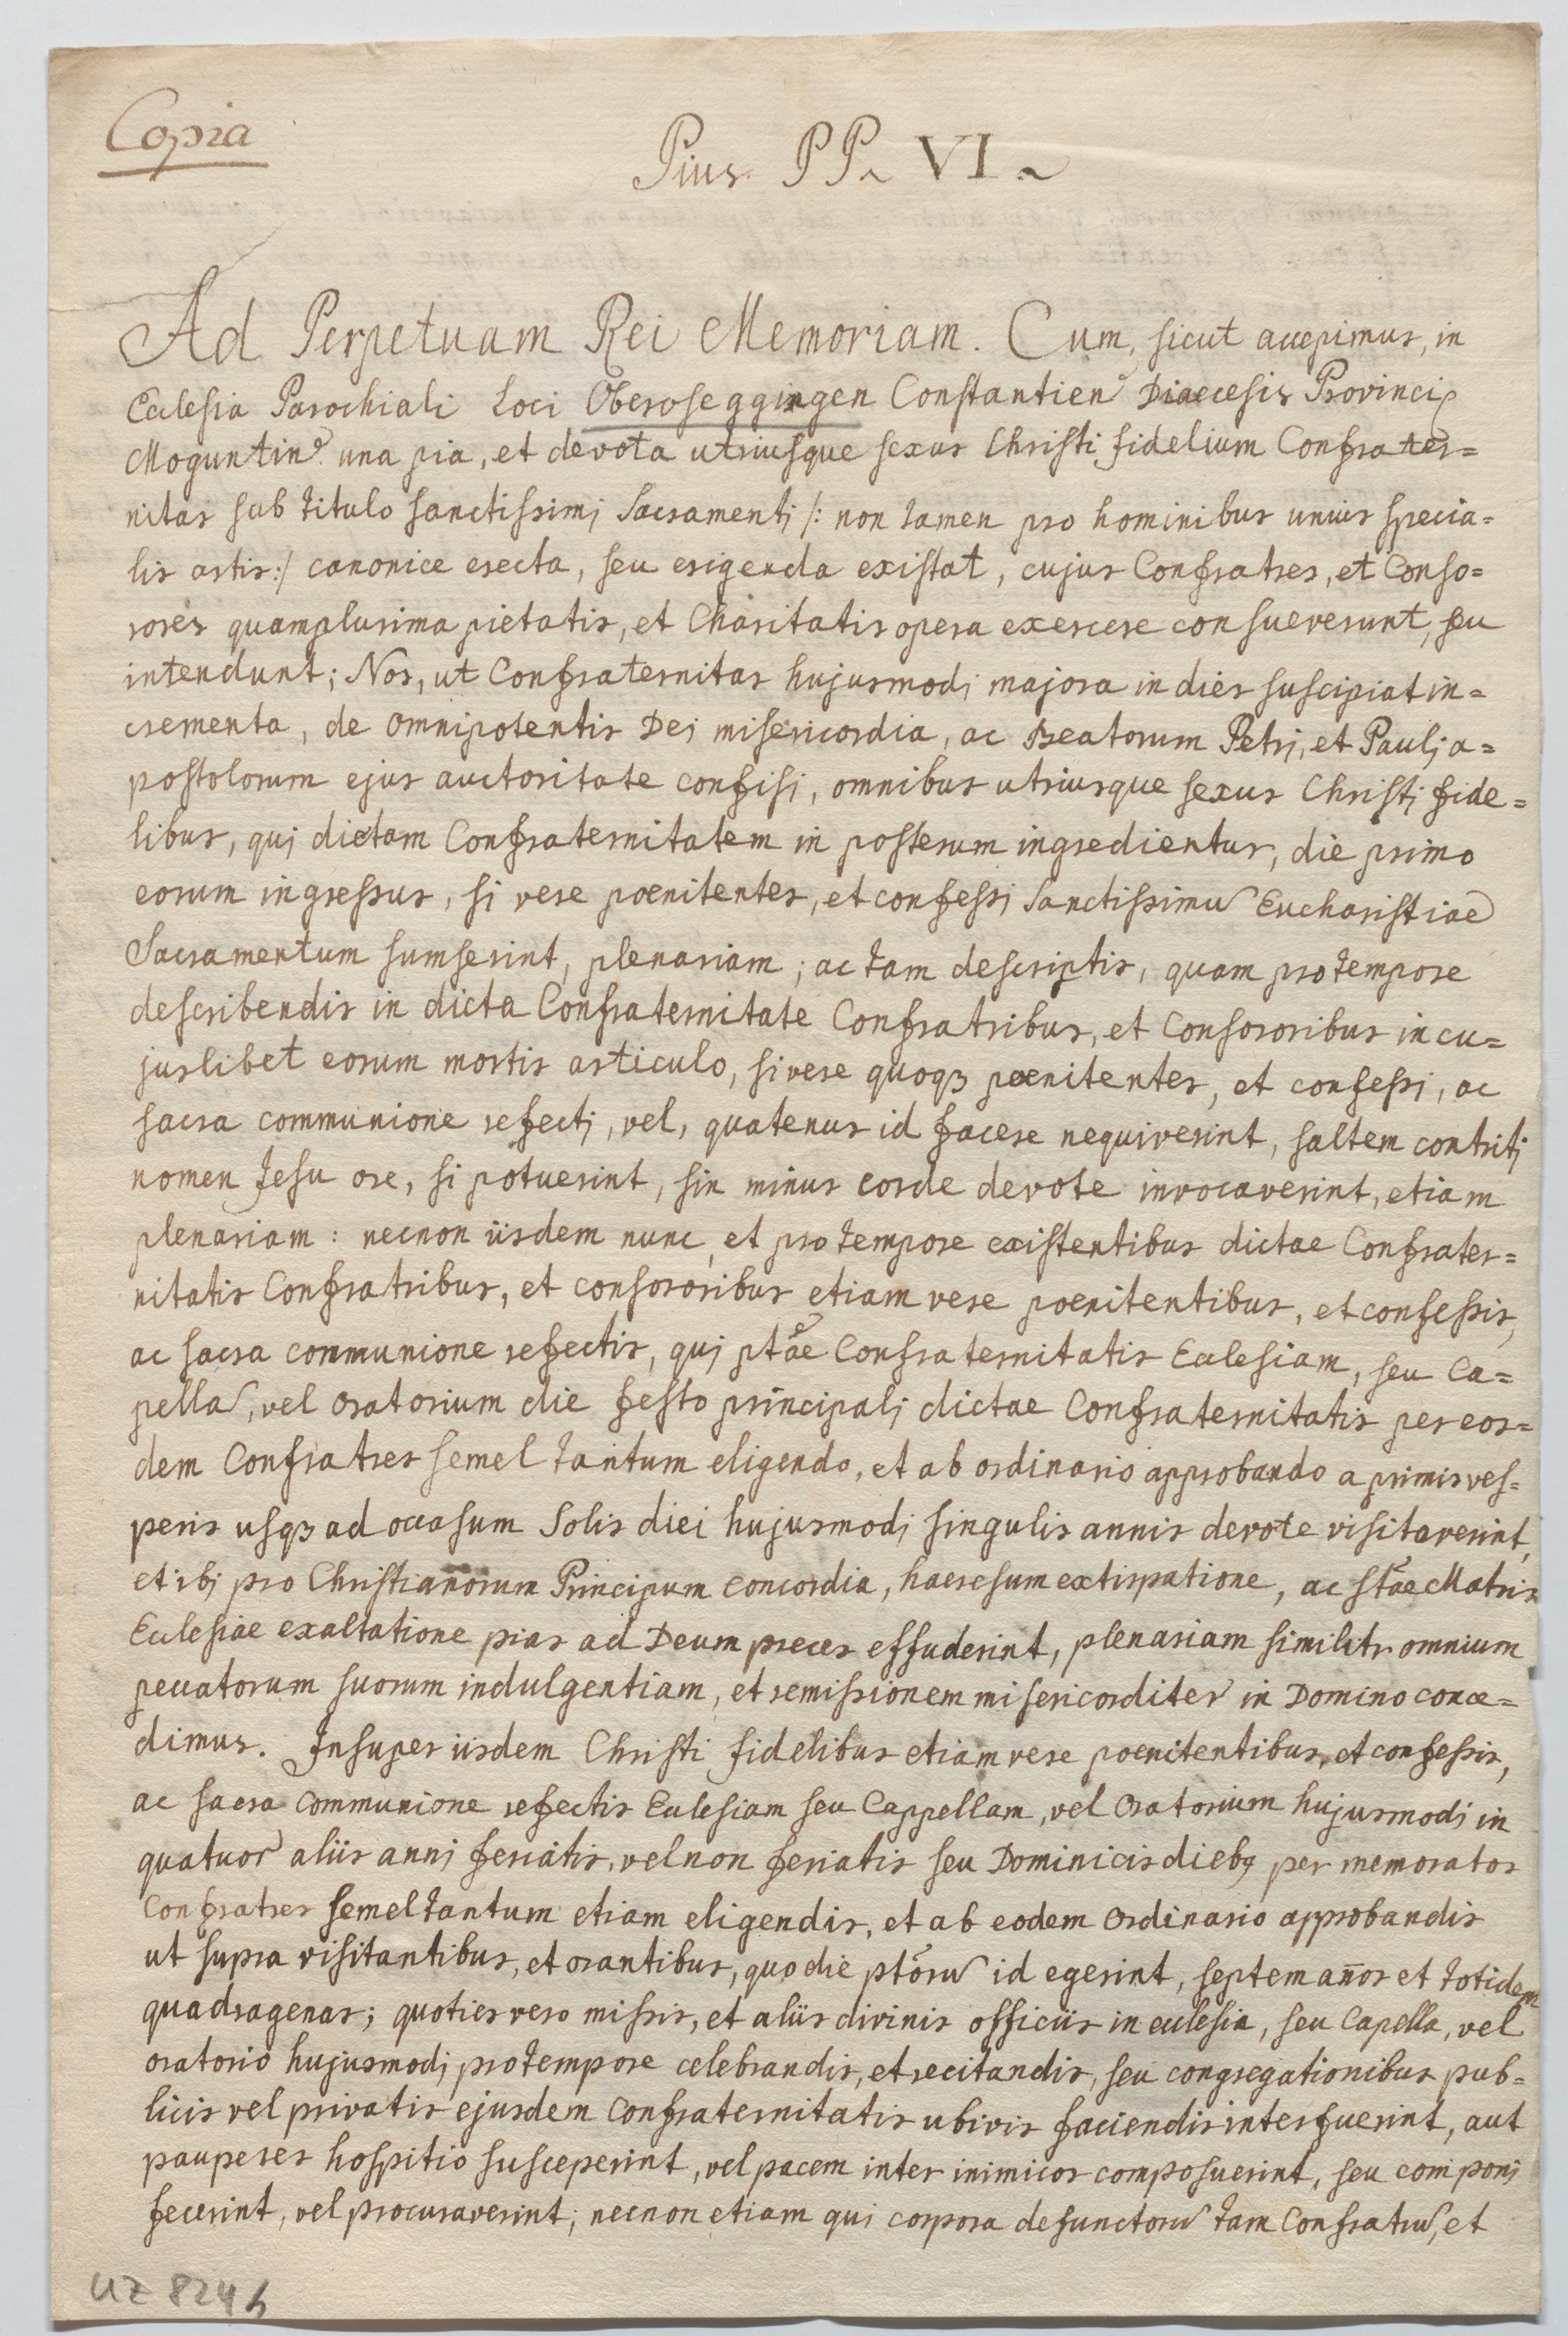 Copia
Pius PP. VI.
Ad Perpetuam Rei Memoriam. Cum, sicut accepimus, in
Ecclesia Parochiali Loci Oberoseggingen Constantien Diaecesis Provincię
Moguntin una pia, et devota utriusque sexus Christi fidelium Confrater=
nitas sub titulo sanctissimi Sacramenti /: non tamen pro hominibus unius specia=
lis artis:/ canonice erecta, seu erigenda existat, cujus Confratres, et Conso=
rores quamplurima pietatis, et Charitatis opera exercere consueverunt, seu
intendunt; Nos, ut Confraternitas hujusmodi majora in dies suscipiat in=
crementa, de omnipotentis Dei misericordia, ac Beatorum Petri, et Pauli a=
postolorum ejus auctoritate confisi, omnibus utriusque sexus Christi fide=
libus, qui dictam Confraternitatem in posterum ingredientur, die primo
eorum ingressus, si vere poenitentes, et confessi Sanctissimū Eucharistiae
Sacramentum sumserint, plenariam; ac tam descriptis, quam pro tempore
describendis in dicta Confraternitate Confratribus, et Consororibus in cu=
juslibet eorum mortis articulo, si vere quoqȝ poenitentes, et confessi, ac
sacra communione refecti, vel, quatenus id facere nequiverint, saltem contriti
nomen Jesu ore, si potuerint, sin minus corde devote invocaverint, etiam
plenariam: necnon iisdem nunc, et pro tempore existentibus dictae Confrater=
nitatis Confratribus, et consororibus etiam vere poenitentibus, et confessis,
ac sacra communione refectis, qui ptāe Confraternitatis Ecclesiam, seu Ca=
pellā, vel oratorium die festo principali dictae Confraternitatis per eos=
dem Confratres semel tantum eligendo, et ab ordinario approbando a primis ves=
peris usqȝ ad occasum Solis diei hujusmodi singulis annis devote visitaverint,
et ibi pro Christianorum Principum concordia, haeresum extirpatione, ac stāe Matris
Ecclesiae exaltatione pias ad Deum preces effuderint, plenariam similitr omnium
peccatorum suorum indulgentiam, et remissionem misericorditer in Domino conce=
dimus. Insuper iisdem Christi fidelibus etiam vere poenitentibus, et confessis,
ac sacra communione refectis Ecclesiam seu Cappellam, vel oratorium hujusmodi in
quatuor aliis anni feriatis, vel non feriatis seu Dominicis diebȝ per memoratos
Confratres semel tantum etiam eligendis, et ab eodem ordinario approbandis
ut supra visitantibus, et orantibus, quo die ptōrū id egerint, septem an̄os et totidem
quadragenas; quoties vero missis, et aliis divinis officiis in ecclesia, seu Capella, vel
oratorio hujusmodi pro tempore celebrandis, et recitandis, seu congregationibus pub=
licis vel privatis ejusdem Confraternitatis ubivis faciendis interfuerint, aut
pauperes hospitio susceperint, vel pacem inter inimicos composuerint, seu componi
fecerint, vel procuraverint; necnon etiam qui corpora defunctorū tam Confratrū, et
UZ 824 h